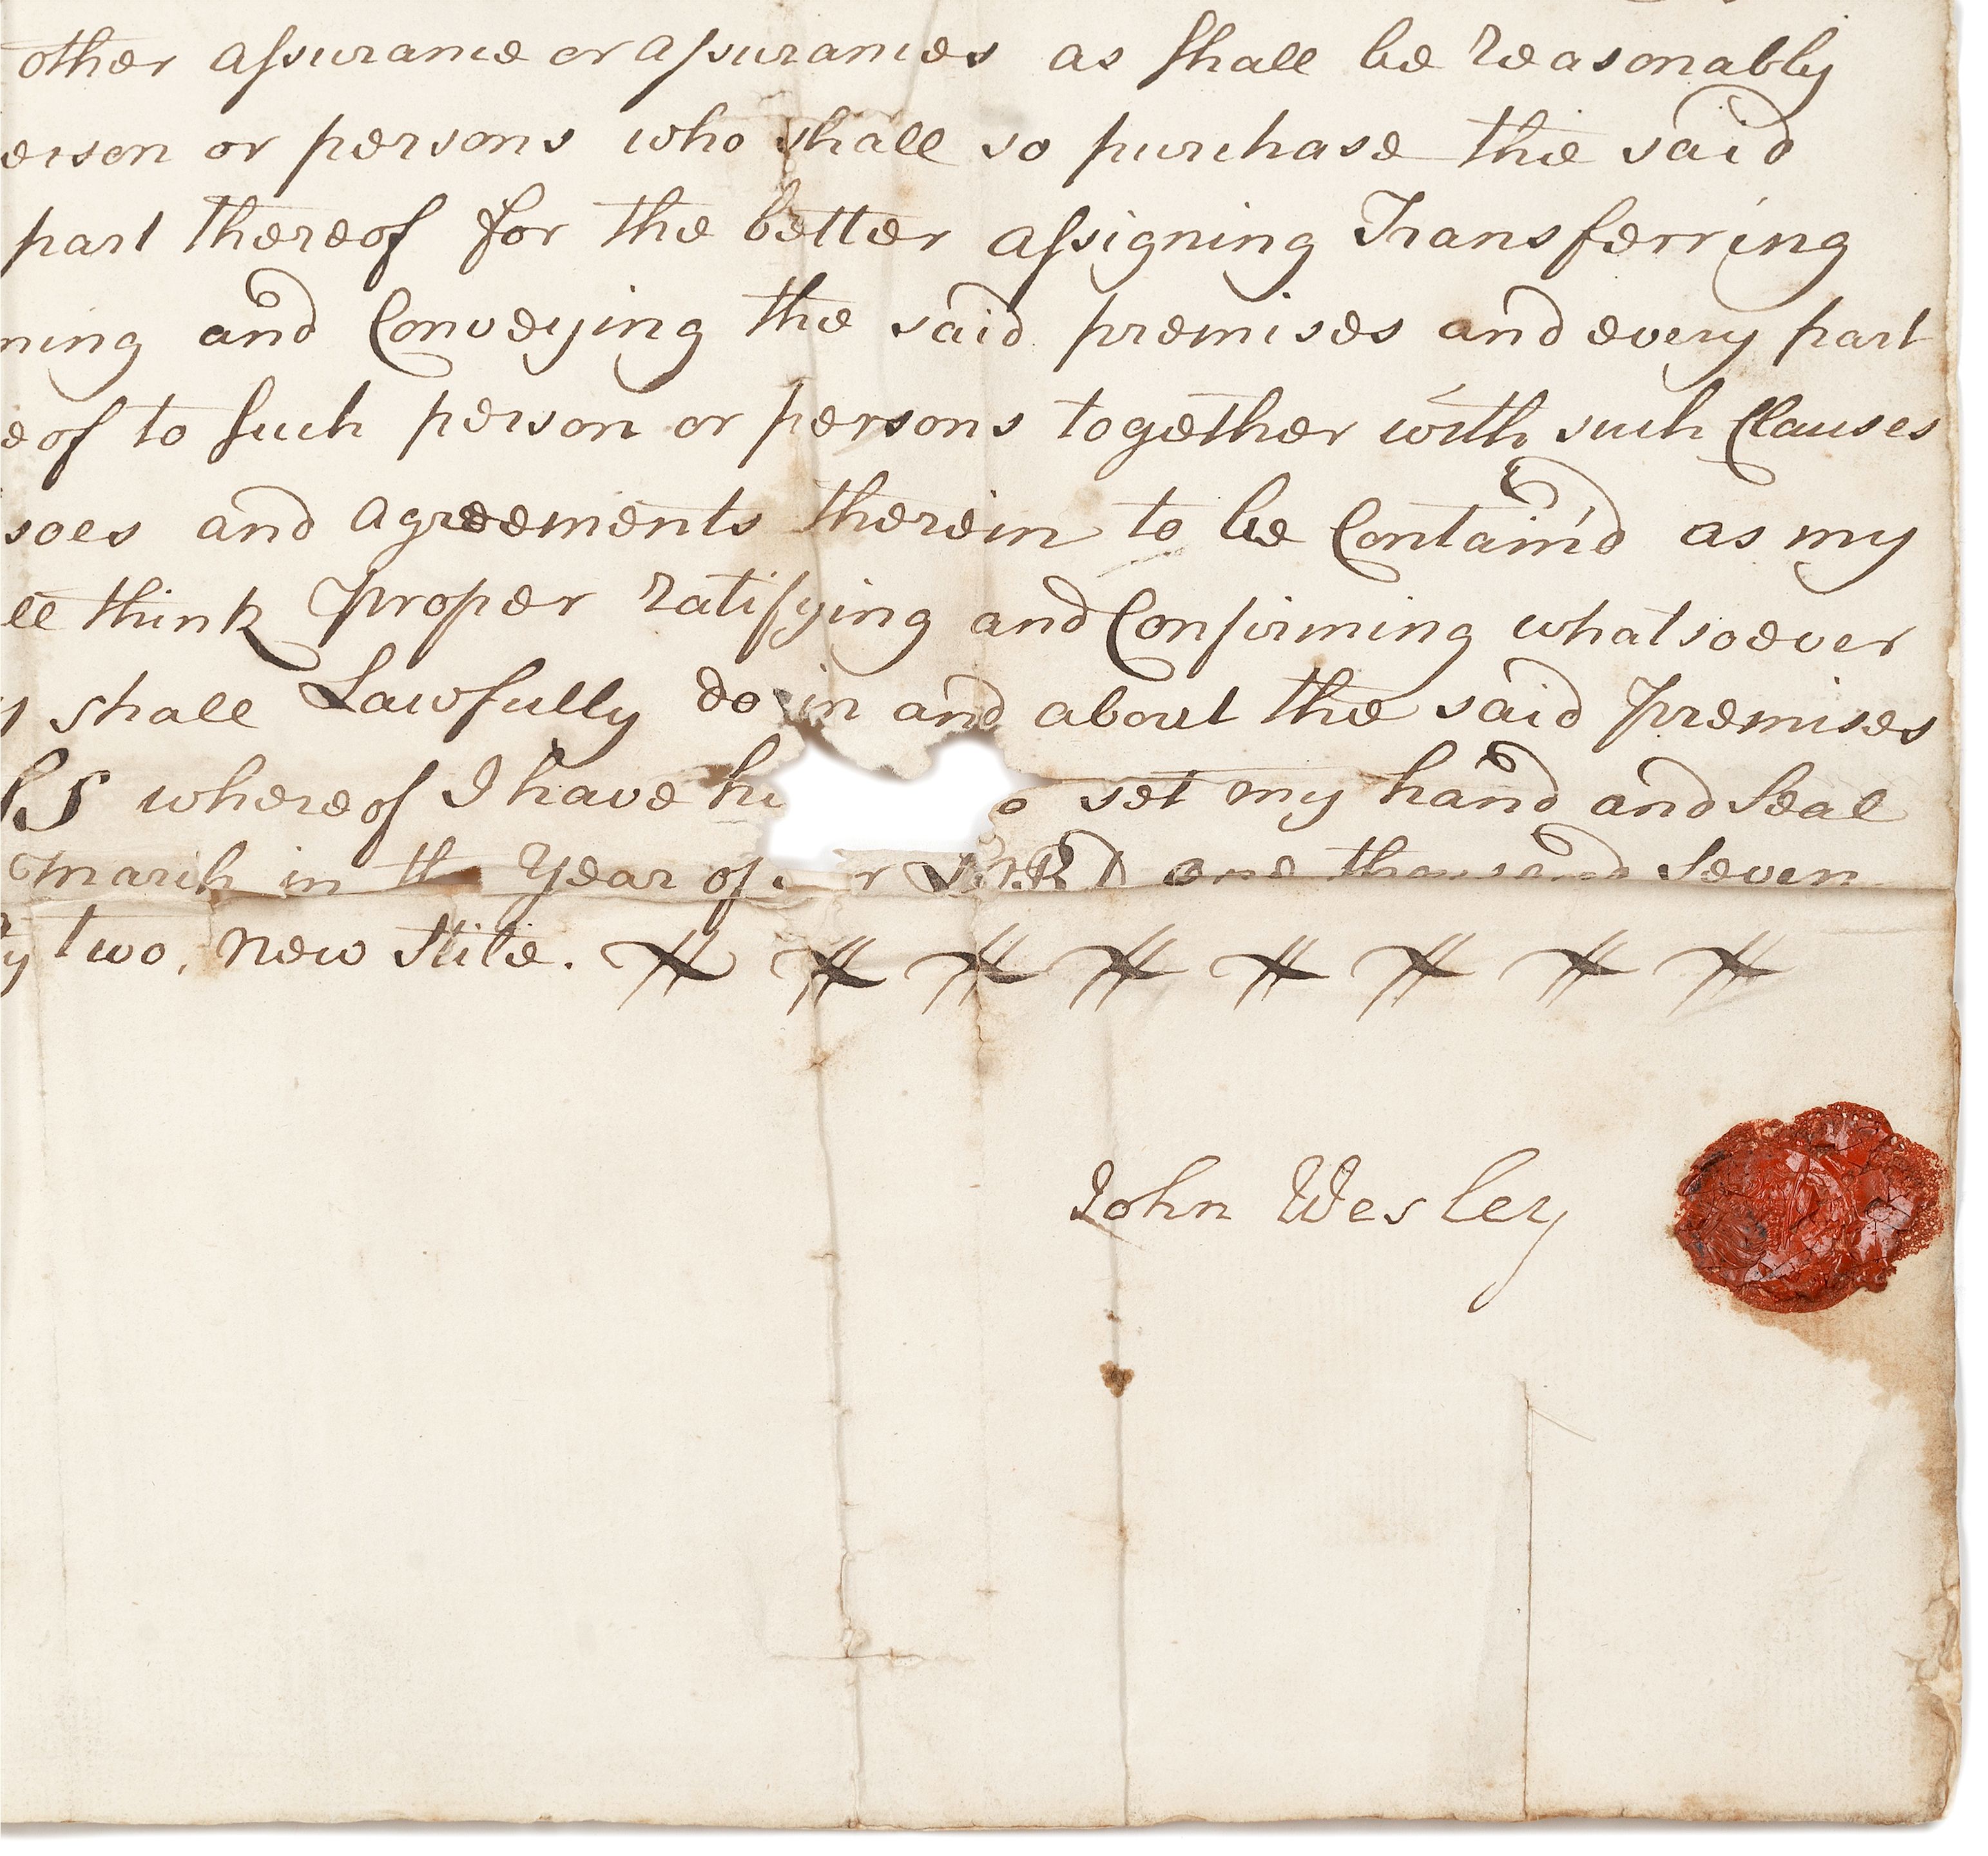 other assurance or assurances as shall be reasonably
erson or persons who shall so purchase the said
part thereof for the better assigning Transferring
ning and Conveying the said premises and every part
eof to such person or persons together with such Clauses
soes and agreements therein to be Contain'd as my
ll think Proper ratifying and Confirming whatsoever
y shall Lawfully do in and about the said Premises
SS whereof I have he o set my hand and Seal
March in th Year of r LORD one thousand Seven
ty two, new Stile.
John Wesley